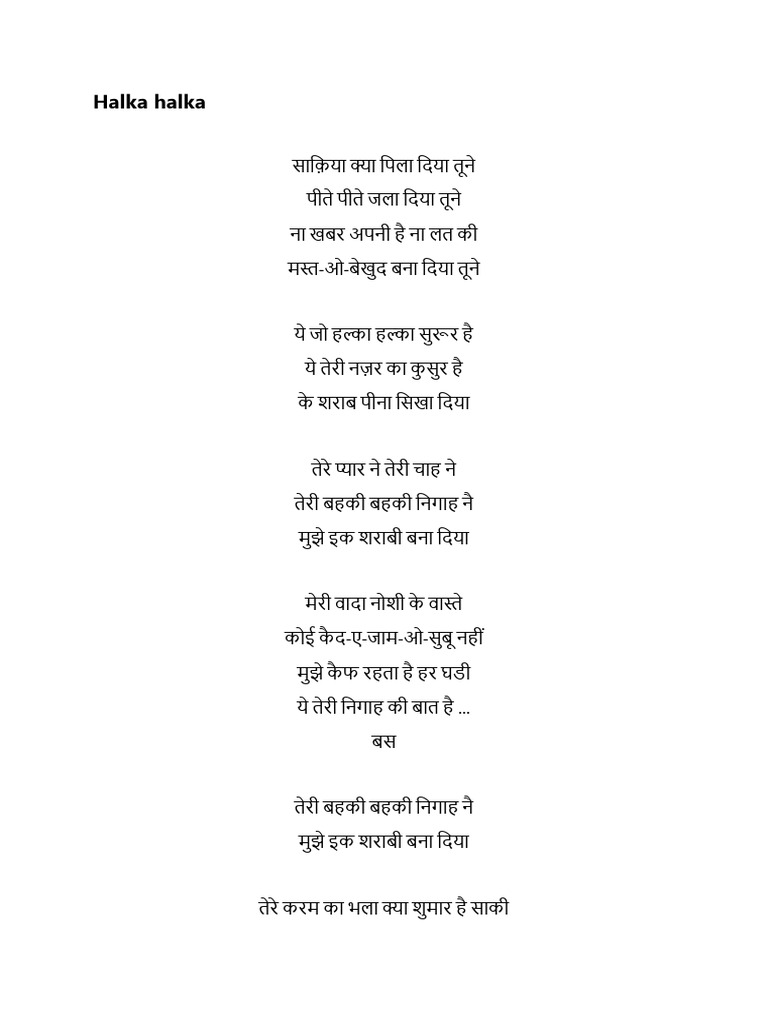 Halka halka
साक़िया क्या पिला दिया तूने
पीते पीते जला दिया तूने
ना खबर अपनी है ना लत की
मस्त-ओ-बेखुद बना दिया तूने
ये जो हल्का हल्का सुरूर है
ये तेरी नज़र का कुसुर है
के शराब पीना सिखा दिया
तेरे प्यार ने तेरी चाह ने
तेरी बहकी बहकी निगाह नै
मुझे इक शराबी बना दिया
मेरी वादा नोशी के वास्ते
कोई कैद-ए-जाम-ओ-सुबू नहीं
मुझे कैफ रहता है हर घडी
ये तेरी निगाह की बात है ...
बस
तेरी बहकी बहकी निगाह नै
मुझे इक शराबी बना दिया
तेरे करम का भला क्या शुमार है साकी